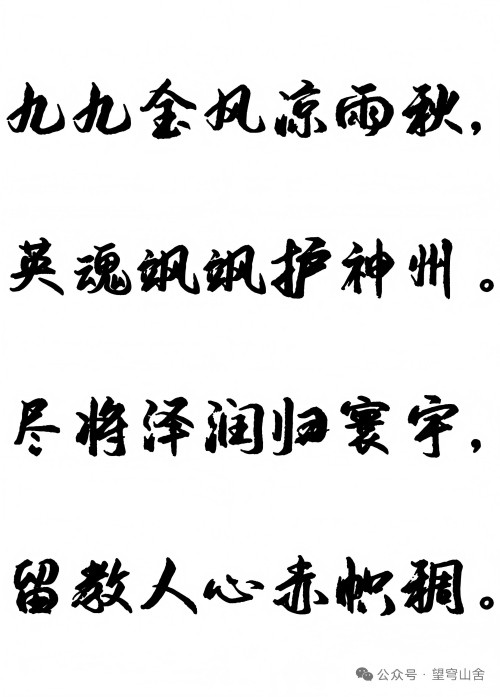 九九金风凉雨秋，
英魂飒飒护神州。
尽将泽润归寰宇，
留教人心赤帜稠。
公众号·望穹山舍